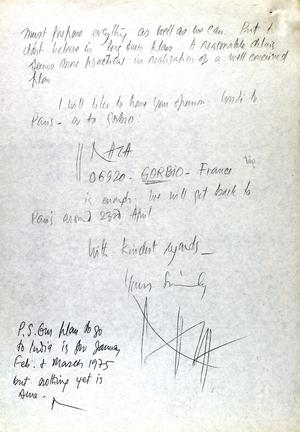 must prepare everything as well as we can. But I
don't believe in long term plans. A reasonable delay
seems more practical in realisation of a well conceived
plan
I will like to have your opinion. Write to
Paris - or to Gorbio.
RAZA
06920 - GORBIO - France
is enough. We will get back to
Paris around 23rd April
With kindest regards -
Yours Sincerely
P.S. Our plan to go
to India is for January
Feb. & March 1975
but nothing yet is
sure -